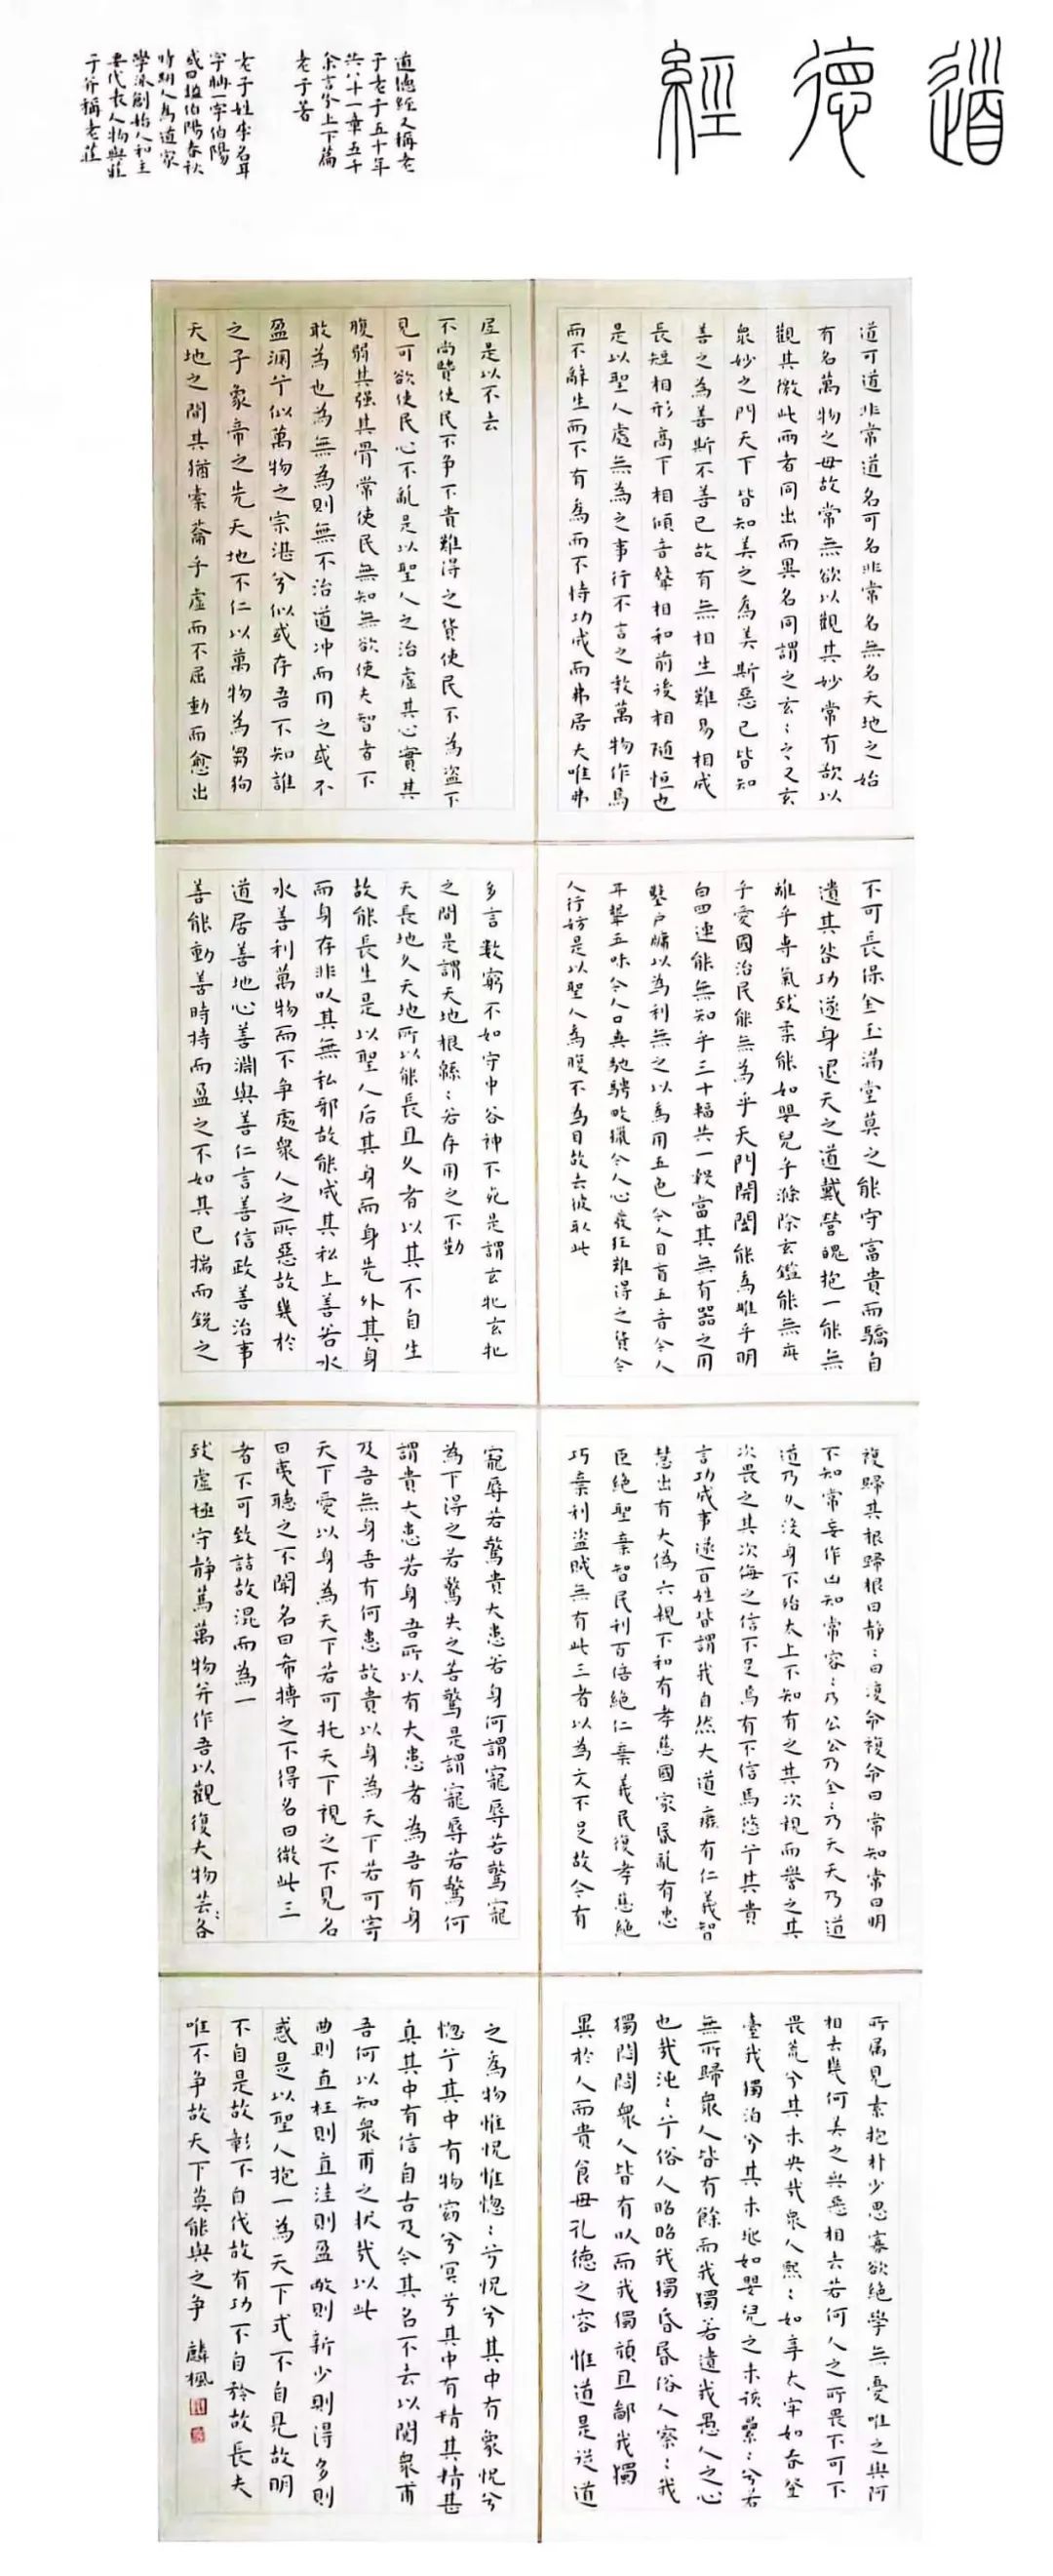 道德經
道德經又稱老
于老子五十年
共八十一章五千
余言分上下篇
老子著
老子姓李名耳
字聃一字伯陽
或曰謚伯陽春秋
時期人為道家
學派創始人和主
要代表人物與莊
子并稱老莊
道可道非常道名可名非常名無名天地之始
有名萬物之母故常無欲以觀其妙常有欲以
觀其徼此兩者同出而異名同謂之玄：之又玄
衆妙之門天下皆知美之為美斯惡已皆知
善之為善斯不善已故有無相生難易相成
長短相形高下相傾音聲相和前後相随恒也
是以聖人處無為之事行不言之教萬物作焉
而不辭生而不有為而不恃功成而弗居夫唯弗
居是以不去
不尚賢使民不争不貴難得之貨使民不為盗不
見可欲使民心不亂是以聖人之治虛其心實其
腹弱其强其骨常使民無知無欲使夫智者不
敢為也為無為則無不治道冲而用之或不
盈淵兮似萬物之宗湛兮似或存吾不知誰
之子象帝之先天地不仁以萬物為芻狗
天地之間其猶橐籥乎虛而不屈動而愈出
不可長保金玉滿堂莫之能守富貴而驕自
遺其咎功遂身退天之道戴營魄抱一能無
離乎専氣致柔能如嬰兒乎滌除玄鑑能無疵
乎愛國治民能無為乎天門開闔能為雌乎明
白四達能無知乎三十輻共一轂當其無有器之用
鑿户牖以為利無之以為用五色令人目盲五音令人
耳聾五味令人口爽馳騁畋獵令人心發狂難得之貨令
人行妨是以聖人為腹不為目故去彼取此
多言數窮不如守中谷神不死是謂玄牝玄牝
之門是謂天地根緜：若存用之不勤
天長地久天地所以能長且久者以其不自生
故能長生是以聖人后其身而身先外其身
而身存非以其無私邪故能成其私上善若水
水善利萬物而不争處衆人之所惡故幾於
道居善地心善淵與善仁言善信政善治事
善能動善時持而盈之不如其已揣而鋭之
復歸其根歸根曰静：曰復命復命曰常知常曰明
不知常妄作凶知常容：乃公公乃全：乃天天乃道
道乃久没身不殆太上不知有之其次親而譽之其
次畏之其次侮之信不足焉有不信焉悠兮其貴
言功成事遂百姓皆謂我自然大道廢有仁義智
慧出有大偽六親不和有孝慈國家昏亂有忠
臣絕聖棄智民利百倍絕仁棄義民復孝慈絕
巧棄利盗賊無有此三者以為文不足故令有
寵辱若驚貴大患若身何謂寵辱若驚寵
為下得之若驚失之若驚是謂寵辱若驚何
謂貴大患若身吾所以有大患者為吾有身
及吾無身吾有何患故貴以身為天下若可寄
天下愛以身為天下若可托天下視之不見名
曰夷聽之不聞名曰希搏之不得名曰微此三
者不可致詰故混而為一
致虛極守静篤萬物并作吾以觀復夫物芸：各
所屬見素抱朴少思寡欲絕學無憂唯之與阿
相去幾何美之與惡相去若何人之所畏不可不
畏荒兮其未央哉衆人熙：如享太牢如春登
臺我獨泊兮其未兆如嬰兒之未孩儽：兮若
無所歸衆人皆有餘而我獨若遺我愚人之心
也哉沌：兮俗人昭昭我獨昏昏俗人察：我
獨悶悶衆人皆有以而我獨頑且鄙我獨
異於人而貴食母孔德之容惟道是從道
之為物惟恍惟惚：兮恍兮其中有象恍兮
惚兮其中有物窈兮冥兮其中有精其精甚
真其中有信自古及今其名不去以閲衆甫
吾何以知衆甫之狀哉以此
曲則直枉則直洼則盈敝則新少則得多則
惑是以聖人抱一為天下式不自見故明
不自是故彰不自伐故有功不自矜故長夫
唯不争故天下莫能與之争 麟楓